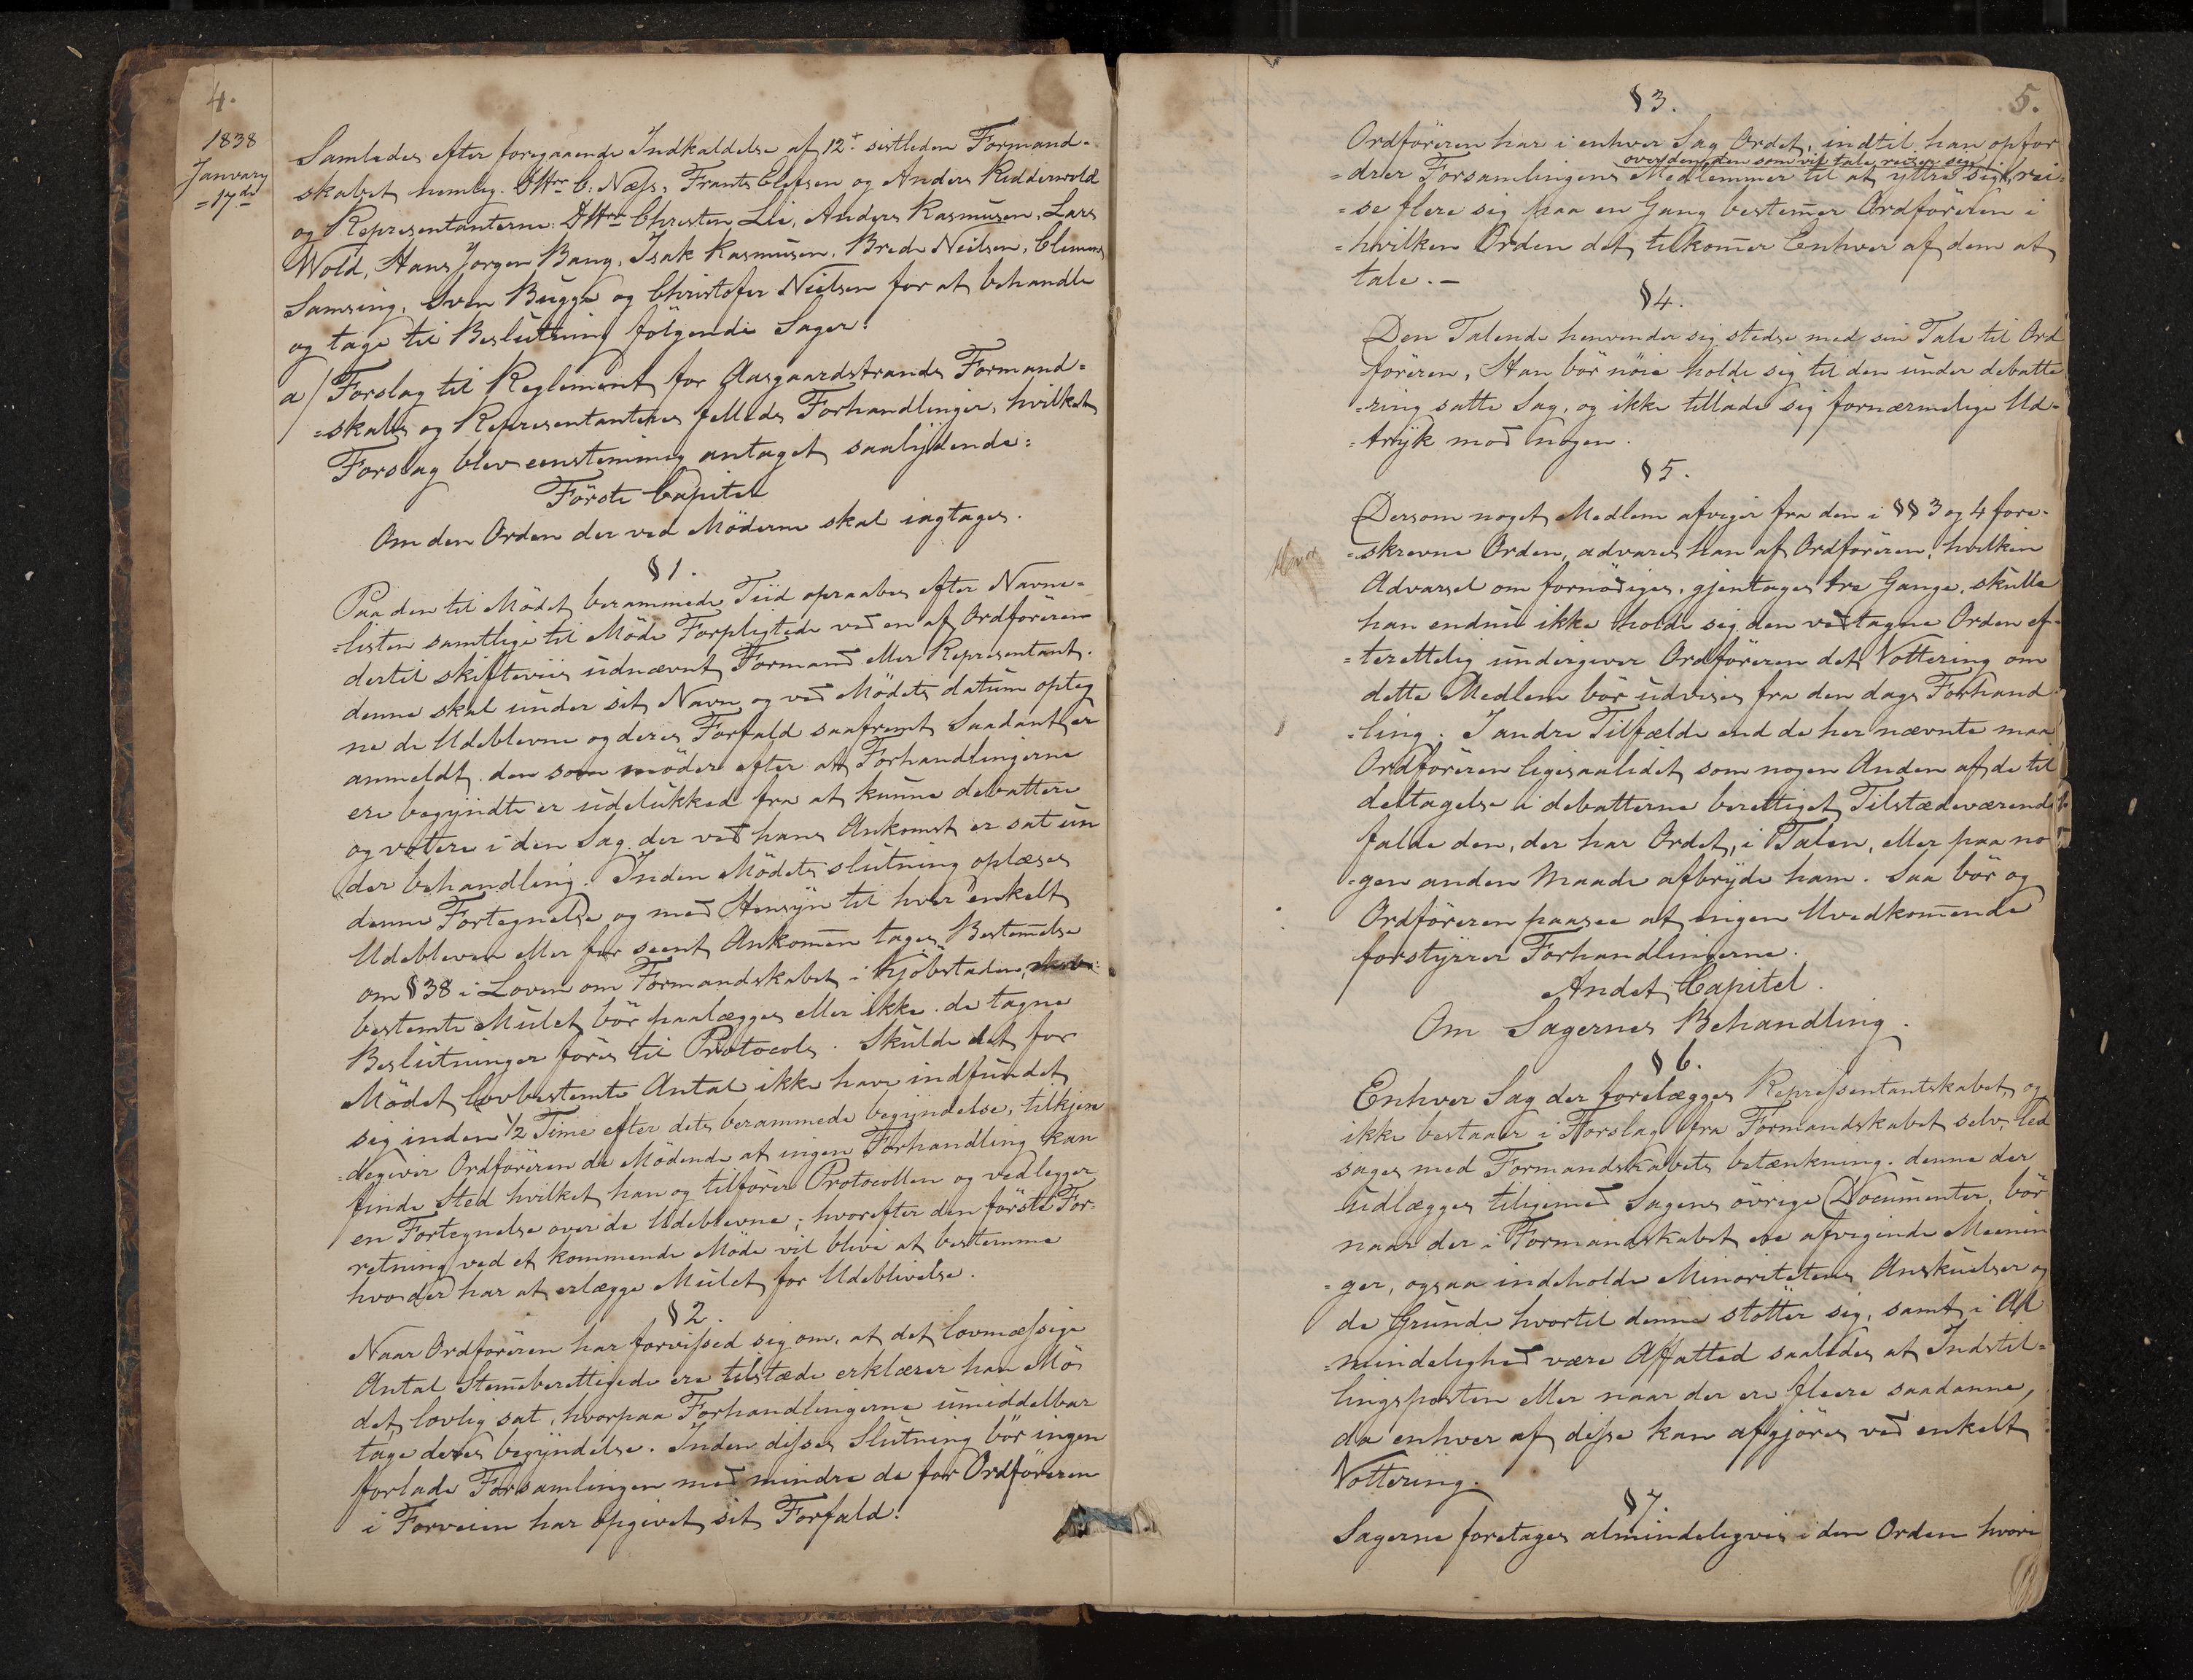 4.
1838
January
=17de
Samledes efter foregaaende Indkaldelse af 12t sistleden Formand-
skabet nemlig. DHrr C. Næss, Frants Elefsen og Anders Ridderwold
og Representanterne: DHrr Christen Lie, Anders Rasmusen, Lars
Wold, Hans Jørgen Bang, Isak Rasmusen, Brede Neilsen, Clemmet
Samsing, Sven Bugge og Christofer Nielsen for at behandle
og tage til Beslutning følgende Sager:
a/ Forslag til Reglement for Aasgaardstrands Formand-
=skabs og Representanteres felleds Forhandlinger, hvilket
Forslag blev eenstemmig antaget saalydende:
Første Capitel
Om den Orden der ved Møderne skal iagtages.
§ 1.
Paa den til Mødet berammede Tiid opraabes efter Navne-
=listen samtlige til Møde Forpligtede ved en af Ordføreren
dertil skifteviis udnævnt Formand eller Representant.
denne skal under sit Navn og ved Mødets datum opteg
ne de Udeblevne og deres Forfald saafremt Saadant er
anmeldt. den som møder efter at Forhandlingerne
ere begyndte er udelukked fra at kunne debattere
og votere i den Sag der ved hans Ankomst er sat un
der behandling. Inden Mødets slutning oplæses
denne Fortegnelse og med Hensyn til hver enkelt
Udebleven eller for seent Ankommen tages Bestemmelse
om § 38 i Loven om Formandskabet i Kjøbstæden
bestemte Mulct bør paalægges eller ikke. de tagne
Beslutninger føres til Protocols. Skulde det for
Mødet lovbestemte Antal ikke have indfundet
sig inden 1/2 Time efter dets berammede begyndelse, tilkjen
=degiver Ordføreren de Mødende at ingen Forhandling kan
finde Sted hvilket han og tilfører Protocollen og vedlegger
en Fortegnelse over de Udeblevne; hvorefter den første For-
retning ved et kommende Møde vil blive at bestemme
hvo der har at erlægge Mulct for Udeblivelse.
§ 2.
Naar Ordføreren har forvissed sig om, at det lovmæssige
Antal Stemmeberettigede ere tilstæde erklærer han Mø-
det lovlig sat, hvorpaa Forhandlingerne umiddelbar
tage deres begyndelse. Inden disses Slutning bør ingen
forlade Forsamlingen med mindre de for Ordføreren
i Forveien har opgivet sit Forfald.
5.
§ 3.
Ordføreren har i enhver Sag Ordet, indtil han opfor
=drer Forsamlingens Medlemmer til at yttre sig, rei-
over den, den som vil tale reiser sig
=se flere sig paa en Gang bestemmer Ordføreren i
=hvilken Orden det tilkommer Enhver af dem at
tale. –
§ 4.
Den Talende henvender sig stedse med sin Tale til Ord
føreren, Han bør nøie holde sig til den under debatte
=ring satte Sag, og ikke tillade sig fornærmelige Ud-
=tryk mod nogen.
§ 5.
Dersom noget Medlem afviger fra den i §§ 3 og 4 fore-
=skrevne Orden, advares han af Ordføreren, hvilken
Advarsel om fornødiges, gjentages tre Gange, skulle
han endnu ikke holde sig den vedtagne Orden ef-
=terettelig undergiver Ordføreren det Vottering om
dette Medlem bør udvises fra den dags Forhand-
=ling. I andre Tilfælde end de her nævnte maa
Ordføreren ligesaalidet som nogen Anden af de til
deltagelse i debatterne berettiget Tilstædeværende
falde den, der har Ordet, i Talen, eller paa no
=gen anden Maade afbryde ham. Saa bør og
Ordføreren paasee at ingen Uvedkommende
forstyrrer Forhandlingerne.
Andet Capitel.
Om Sagernes Behandling.
§ 6.
Enhver Sag der forelægges Repressentantskabet og
ikke bestaaer i Forslag fra Formandskabet selv, led
sages med Formandskabets betænkning. denne der
udlægges tilligemed Sagens øvrige Documenter, bør
naar der i Formandskabet ere afvigende Meenin
=ger, ogsaa indeholde Minoritetens Anskuelser og
de Grunde hvortil denne støtter sig, samt i Al
=mindelighed være Affatted saaledes at Indstil-
lingsposten eller naar der ere fleere saadanne,
da enhver af disse kan afgjøres ved enkelt
Vottering.
§ 7.
Sagerne foretages almindeligvis i den Orden hvori